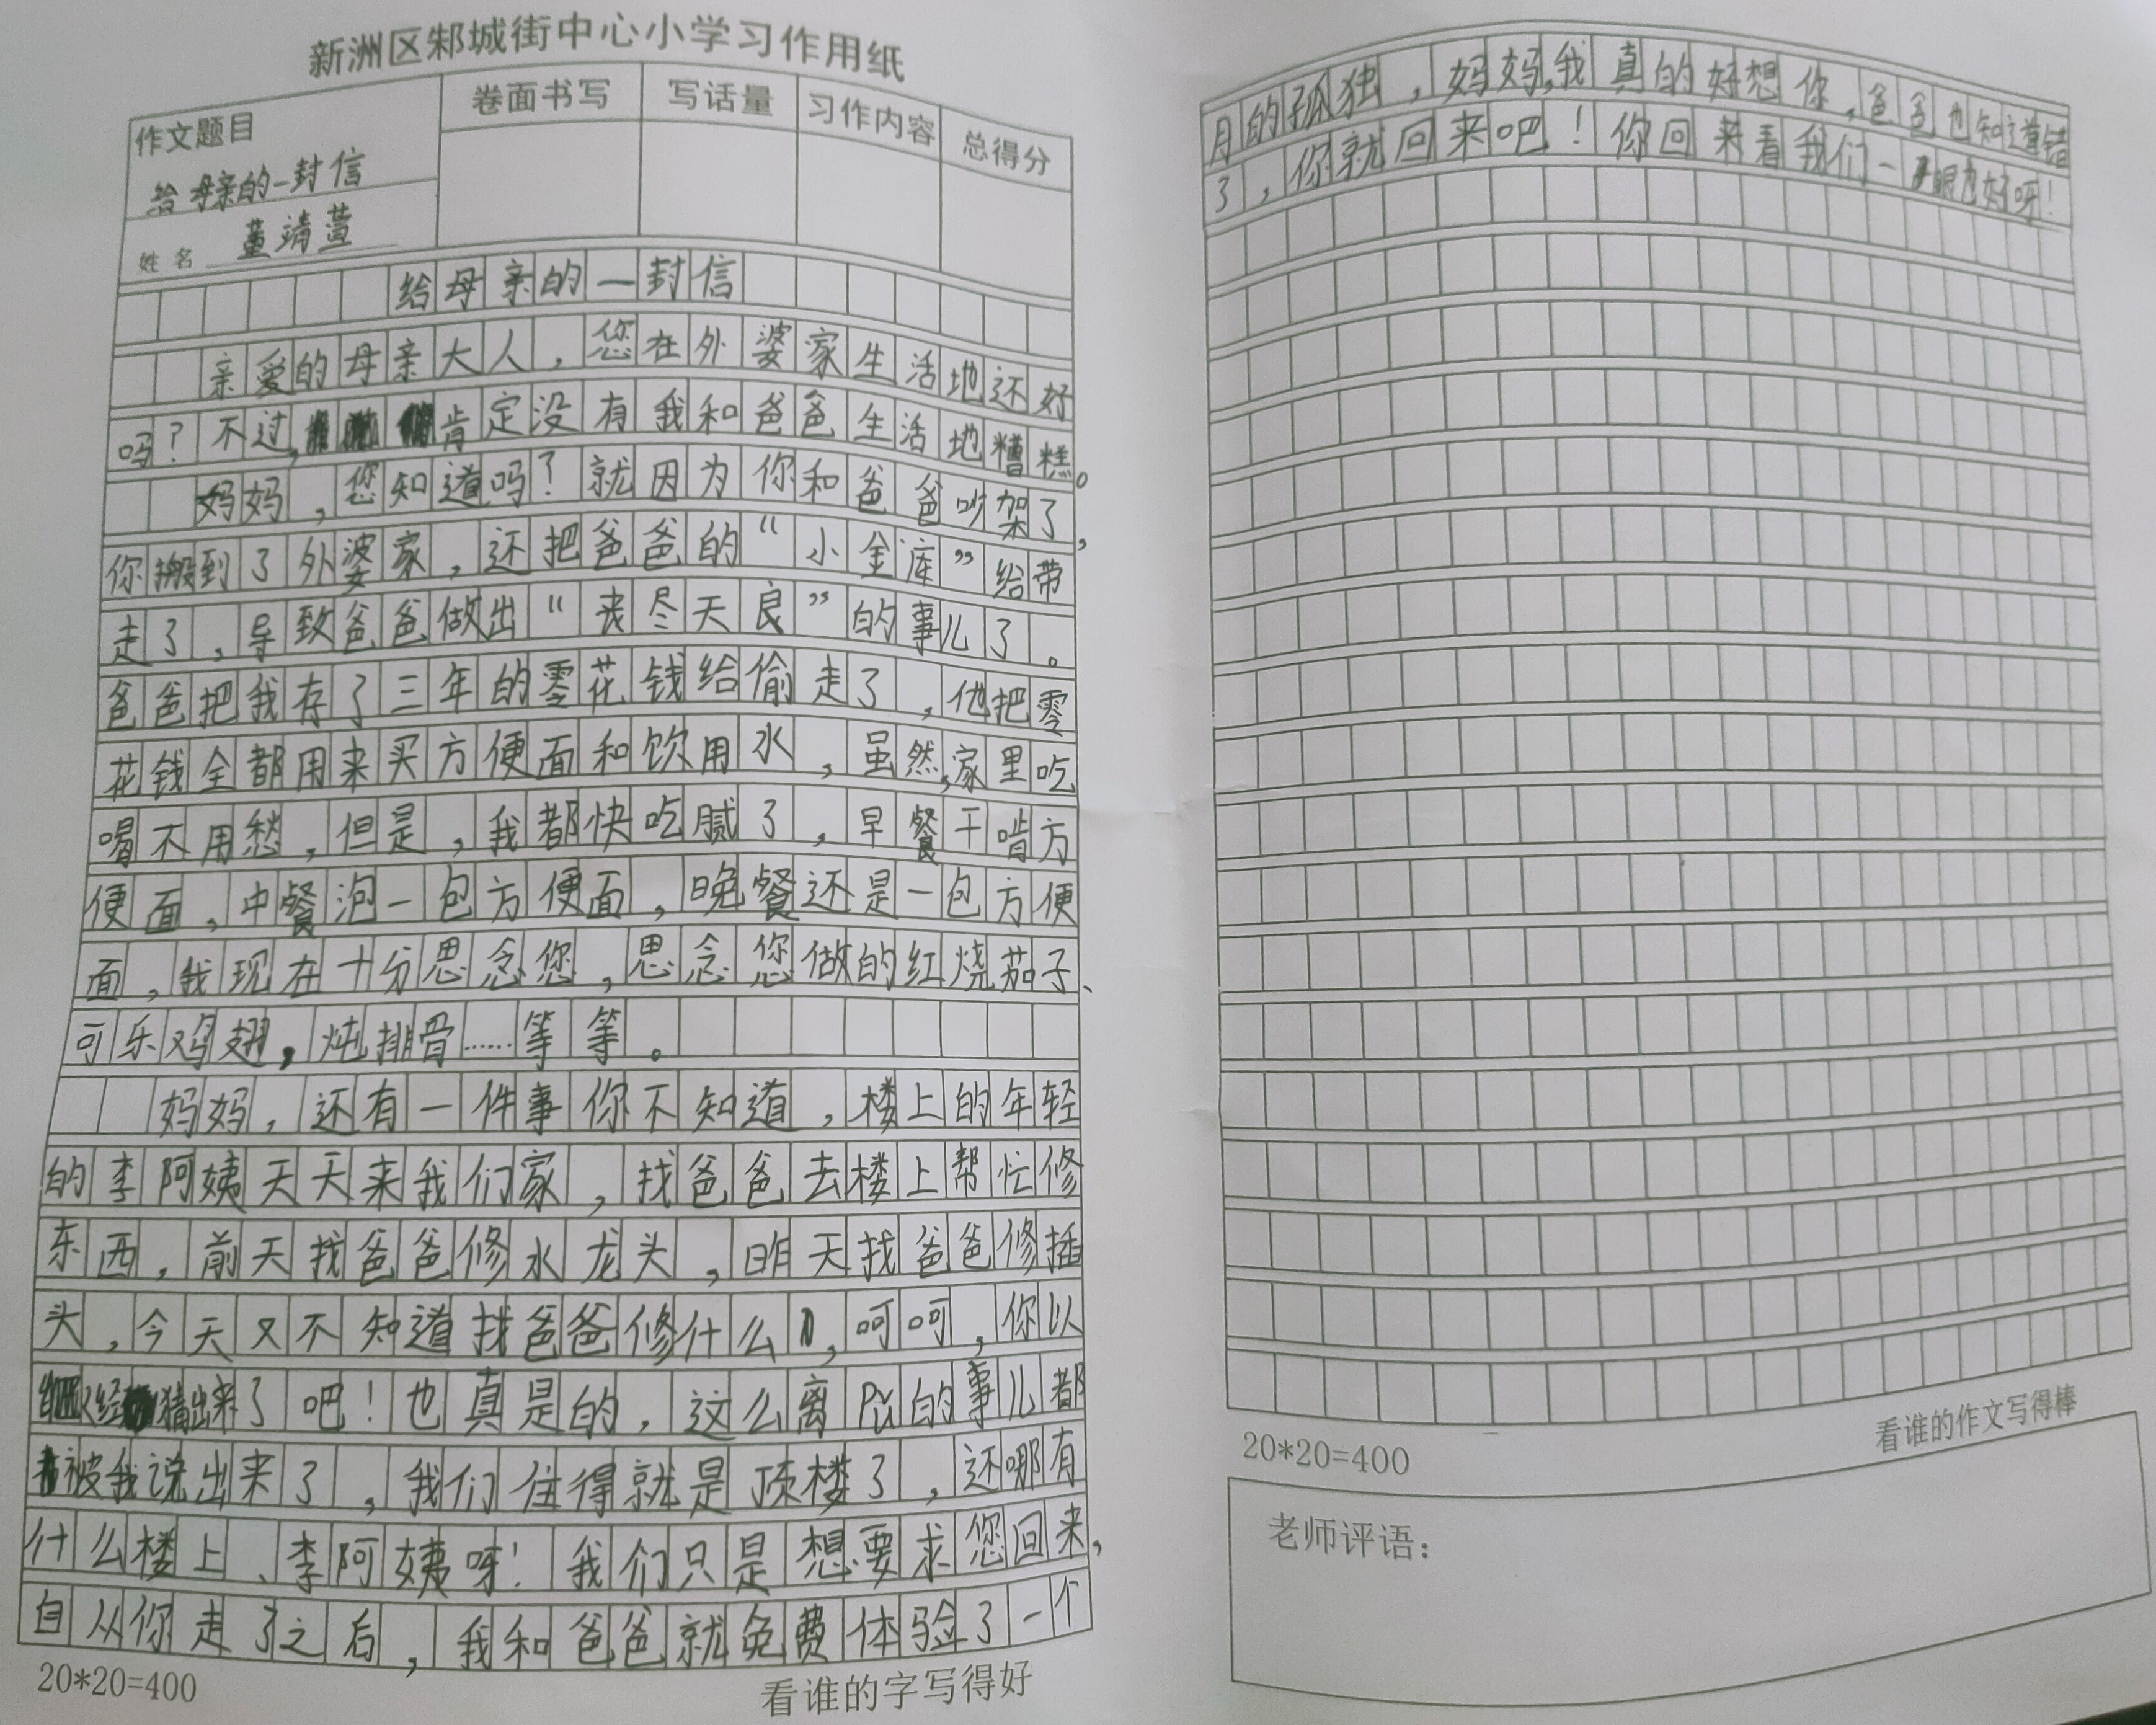 新洲区邾城街中心小学习作用纸
作文题目
卷面书写
写话量
习作内容
总得分
给母亲的一封信
姓名 董靖萱
给母亲的一封信
亲爱的母亲大人，您在外婆家生活地还好
吗？不过，肯定没有我和爸爸生活地糟糕。
妈妈，您知道吗？就因为你和爸爸吵架了，
你搬到了外婆家，还把爸爸的“小金库”给带
走了，导致爸爸做出“丧尽天良”的事儿了。
爸爸把我存了三年的零花钱给偷走了，他把零
花钱全都用来买方便面和饮用水，虽然，家里吃
喝不用愁，但是，我都快吃腻了，早餐干啃方
便面，中餐泡一包方便面，晚餐还是一包方便
面，我现在十分思念您，思念您做的红烧茄子、
可乐鸡翅，炖排骨……等等。
妈妈，还有一件事你不知道，楼上的年轻
的李阿姨天天来我们家，找爸爸去楼上帮忙修
东西，前天找爸爸修水龙头，昨天找爸爸修插
头，今天又不知道找爸爸修什么，呵呵，你以
经猜出来了吧！也真是的，这么离pǔ的事儿都
被我说出来了，我们住得就是顶楼了，还哪有
什么楼上、李阿姨呀！我们只是想要求您回来，
自从你走了之后，我和爸爸就免费体验了一个
20*20=400
看谁的字写得好
月的孤独，妈妈，我真的好想你，爸爸也知道错
了，你就回来吧！你回来看我们一眼也好呀！
20*20=400
看谁的作文写得棒
老师评语：